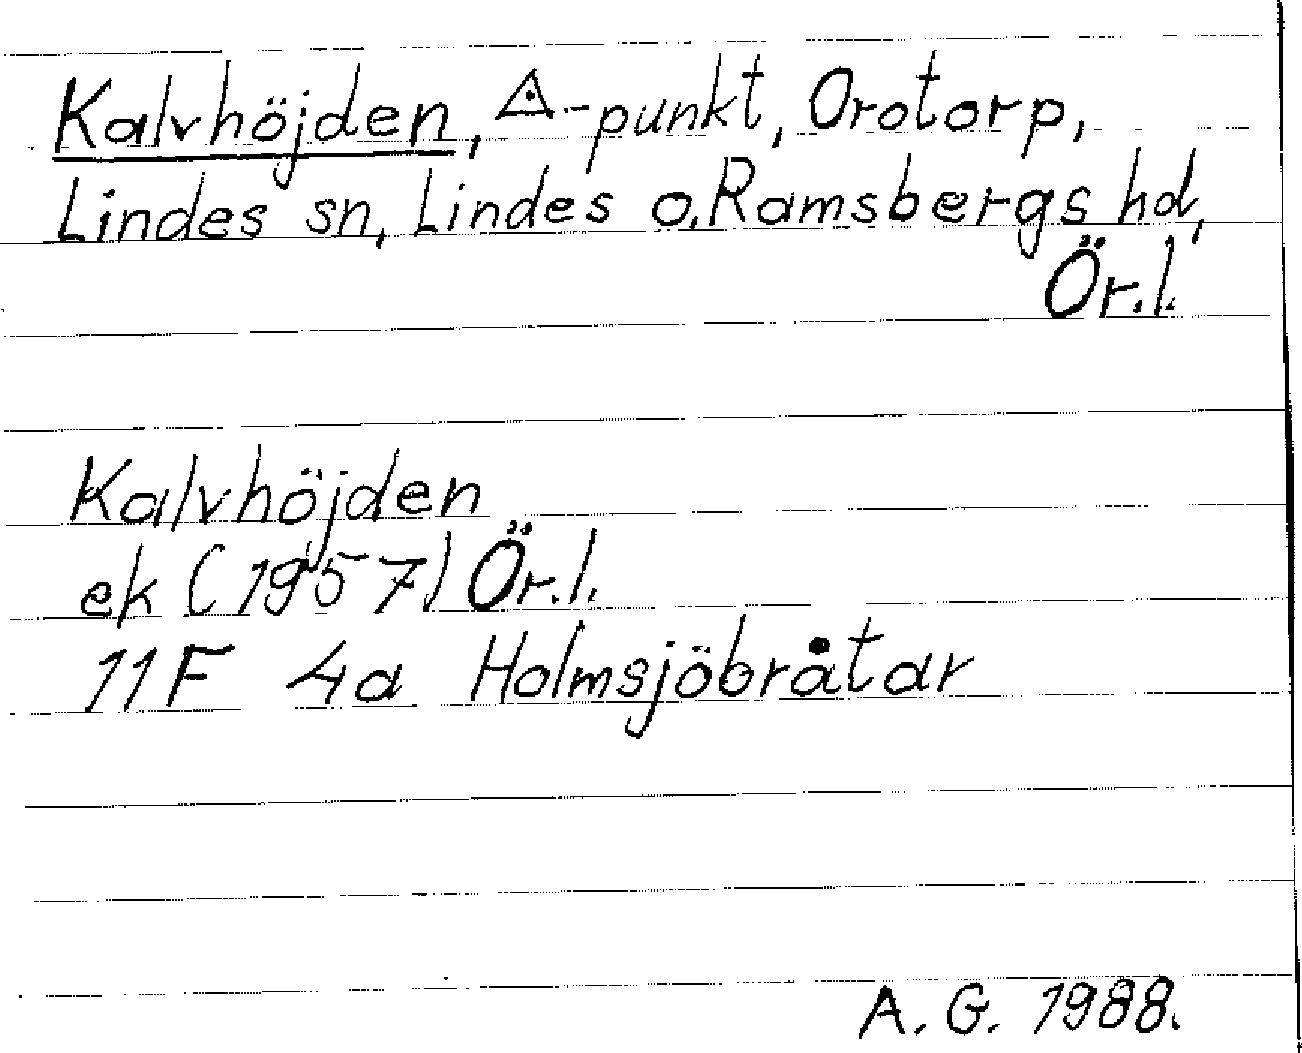 Kalvhöjden, ◬-punkt, Orotorp,
Lindes sn, Lindes o. Ramsbergs hd,
Ör.l.
Kalvhöjden
ek (1957) Ör.l.
11F 4a Holmsjöbråtar
A.G. 1988.